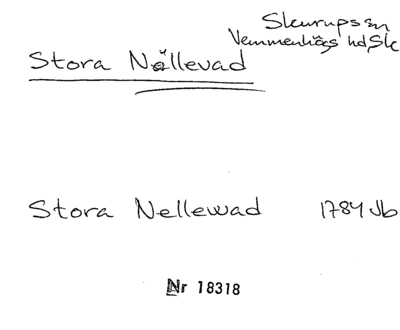 Skurups sn
Vemmenhögs hd, Sk
Stora Nällevad
Stora Nellewad 1784 Jb
Nr 18318